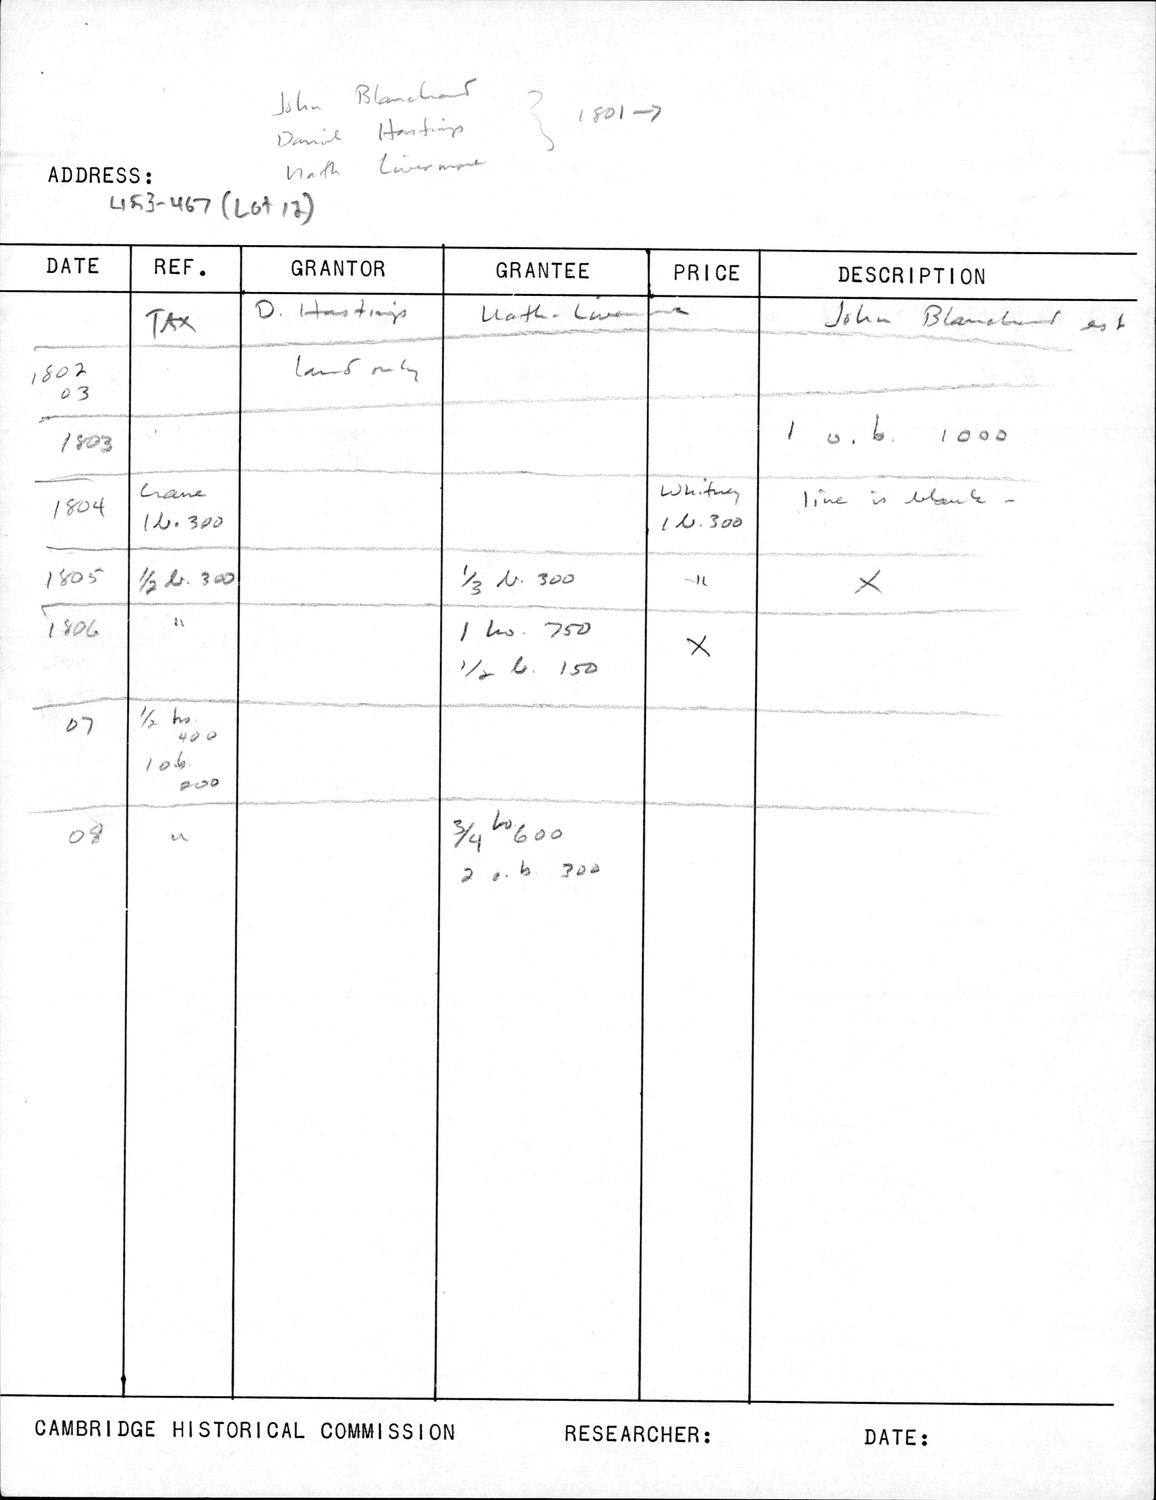 John Blanchard
Daniel Hastings } 1801→
Nath Livermore
ADDRESS:
453-467 (Lot 12)
DATE REF. GRANTOR GRANTEE PRICE DESCRIPTION
TAX D. Hastings Nath. Livermore John Blanchard est
1802 land only
03
1803 1 o.b. 1000
1804 Crane Whitney line is blank -
1 b. 300 1 b. 300
1805 1/2 b. 300 1/3 b. 300 -" X
1806 " 1 ho. 750 X
1/2 b. 150
07 1/2 ho.
400
1 o b.
200
08 " 3/4 ho. 600
2 o. b. 300
CAMBRIDGE HISTORICAL COMMISSION RESEARCHER: DATE: